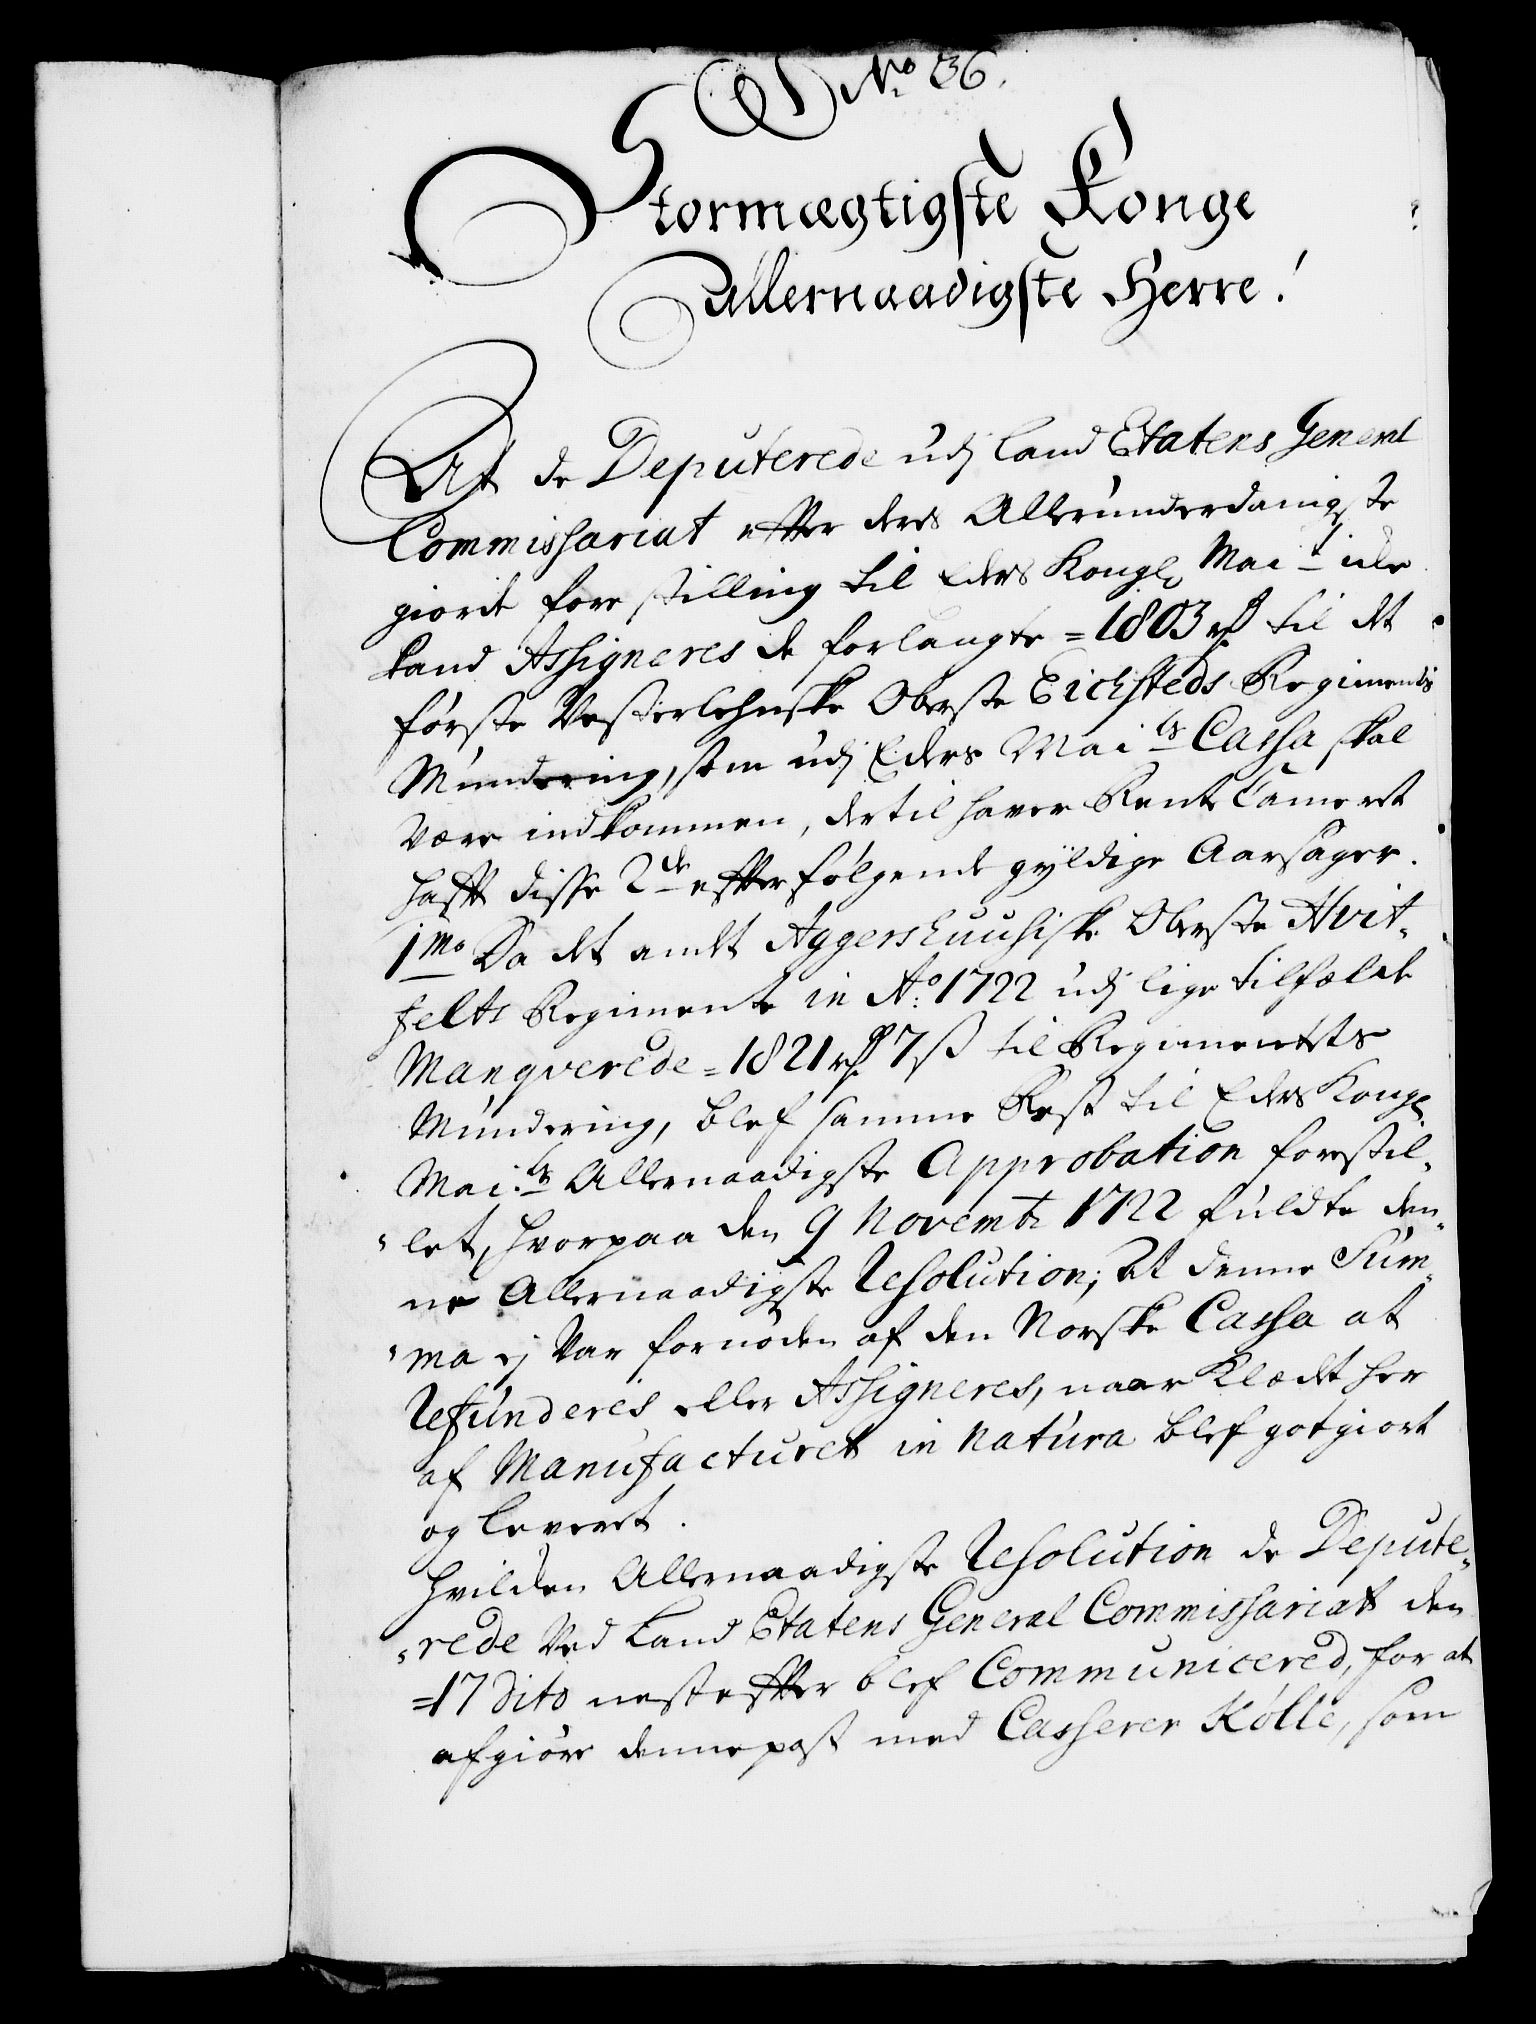 No 36.
Stormægtigste Konge
Allernaadigste Herre!
At de Deputerede udj Land Etatens General
Commissariat effter deres Allerunderdanigste
giorde forestilling til Eders Kongl. Mait icke
kand Assigneres de forlangte = 1803 rd til det
første Vesterlehnske Oberste Eichsteds Regiments
Mundering, som udj Eders Maits Cassa skal
være indkommen, dertil haver Rente Cameret
hafft disse 2de effterfølgende gyldige Aarsager.
1mo Da det andet Aggershuusiske Oberste Hvit-
felts Regimente in Ao: 1722 udj lige tilfælde
Manqverede = 1821 rd 7 ß til Regimentets
Mundering, blef samme Rest til Eders Kongl.
Mai:ts Allernaadigste Approbation forestil-
let, hvorpaa den 9 Novembr 1722 fuldte den-
ne Allernaadigste Resolution; At denne Sum-
ma ej var fornøden af den Norske Cassa at
Refunderes eller Assigneres, naar Klædet her
af Manufacturet in Natura blef gotgiort
og leveret.
Hvilcken Allernaadigste Resolution de Depute-
rede ved Land Etatens General Commissariatet den
= 17 dito nesteffter blef Communicered, for at
afgiøre denne post med Casserer Kølle, som